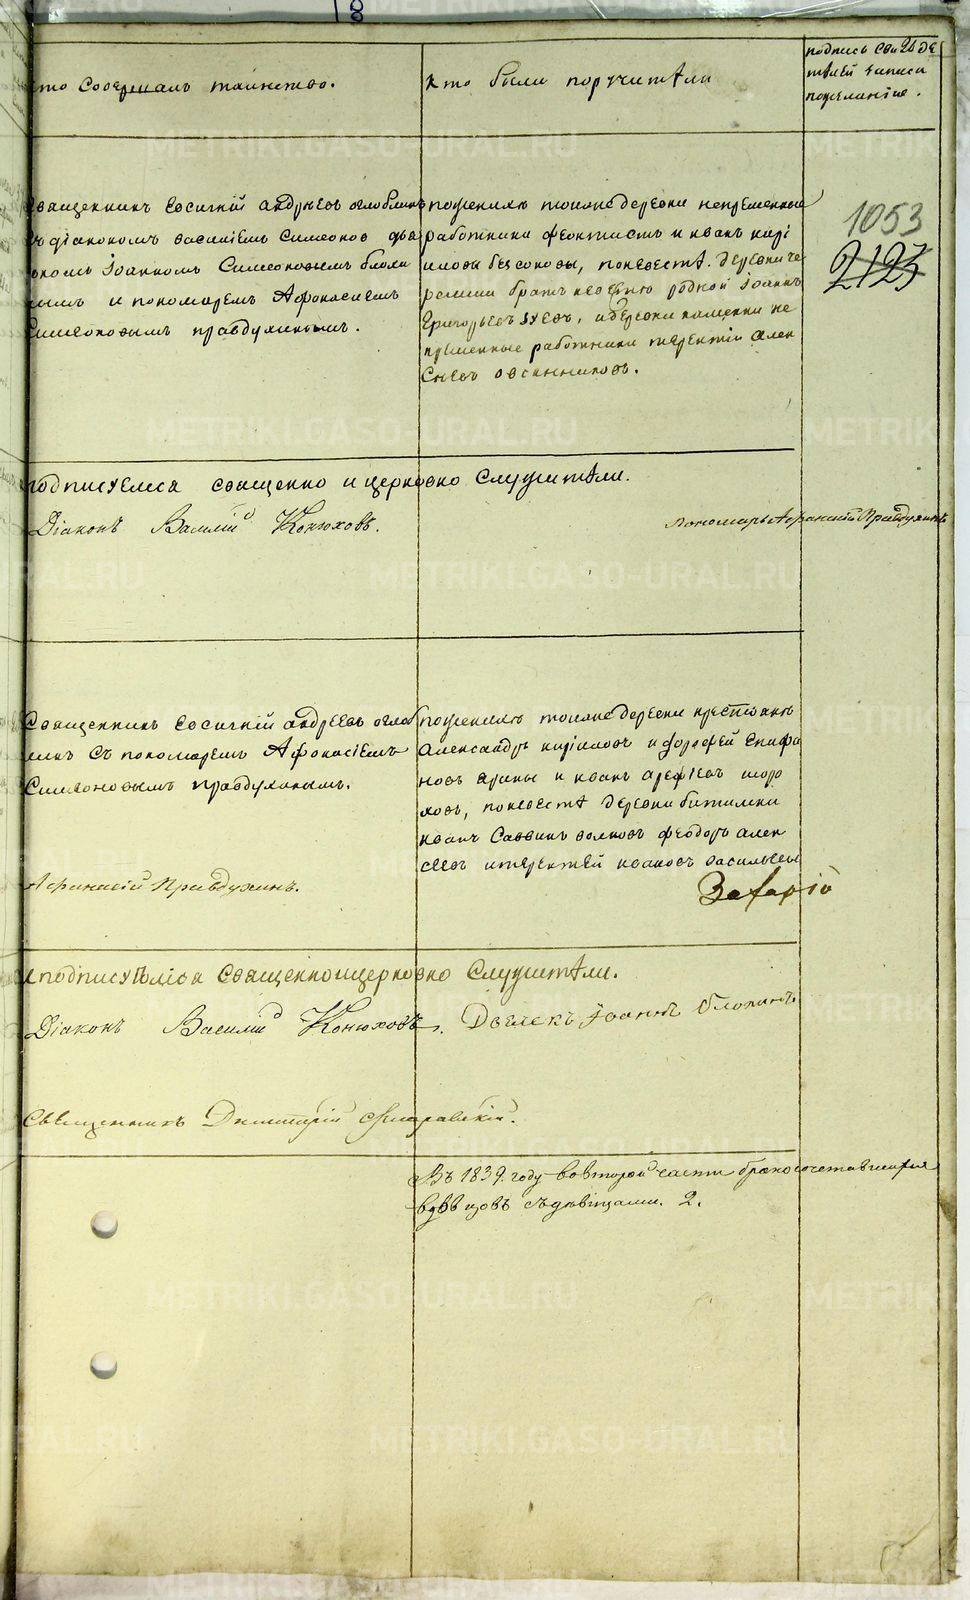 кто совершалъ таинство.
кто были поручители
подпись свидѣ
тѣлей записи
по желанію.
1053
2123
священникъ Евсигній Андрѣевъ оглоблинъ
съ діакономъ василіемъ Симеонов дья
комъ Іоанномъ Симеоновымъ блохи
нымъ и пономаремъ Афонасіемъ
Симеоновымъ правдухинымъ.
по женихѣ тоияже деревни непременныи
работники феоктистъ и иванъ кирі
иловы безсоновы, по невестѣ. деревни че
ремши братъ невѣстѣ родной Іоаннъ
Григорьевъ зуевъ, и деревни каменки не
пременные работники терентій алек
Сѣевъ овсянниковъ.
подписуемся священно и церковно Служители.
Діаконъ Василій Конюховъ.
Пономарь Афанасій Правдухинъ
Священникъ Евсигній андреевъ оглоб
линъ съ пономаремъ Афонасіемъ
Симеоновымъ правдухинымъ.
по женихѣ тоияже деревни крестьяне
Александръ кириловъ и дорофей Епифа
новъ и иванъ арефьевъ
по невестѣ деревни битимки
иванъ Саввинъ волковъ феодоръ алек
сеевъ и терентей ивановъ васильевы
Афанасій Правдухинъ.
подписуемся Священно и церковно Служители.
Діаконъ Василій Конюховъ.
Дьячекъ Іоаннъ Блохинъ
Священникъ Димитрій
Въ 1839. году во второй части бракосочетавшихся
вдовцовъ съ дѣвицами. 2.
METRIKI.GASO-URAL.RU